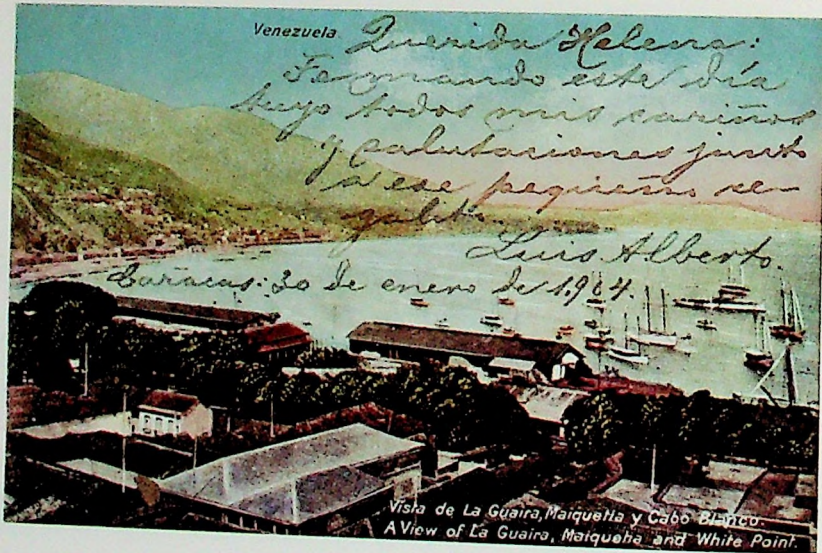 Venezuela
Querida Helena:
este día
tuyo todos mis cariños
y salutaciones junto
a ese pequeño re-
galito.
Luis Alberto.
Caracas: 30 de enero de 1,904.
Vista de La Guaira, Maiquetia y Cabo Blanco.
A View of La Guaira, Maiquetia and White Point.